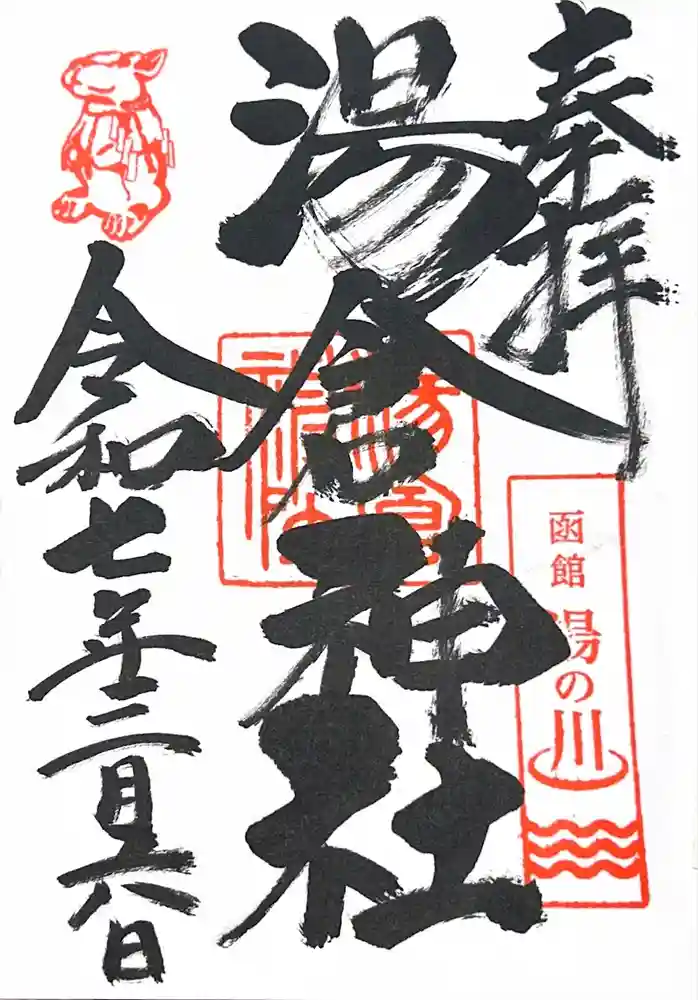 奉拝
函館 湯の川
湯倉神社
令和七年三月六日